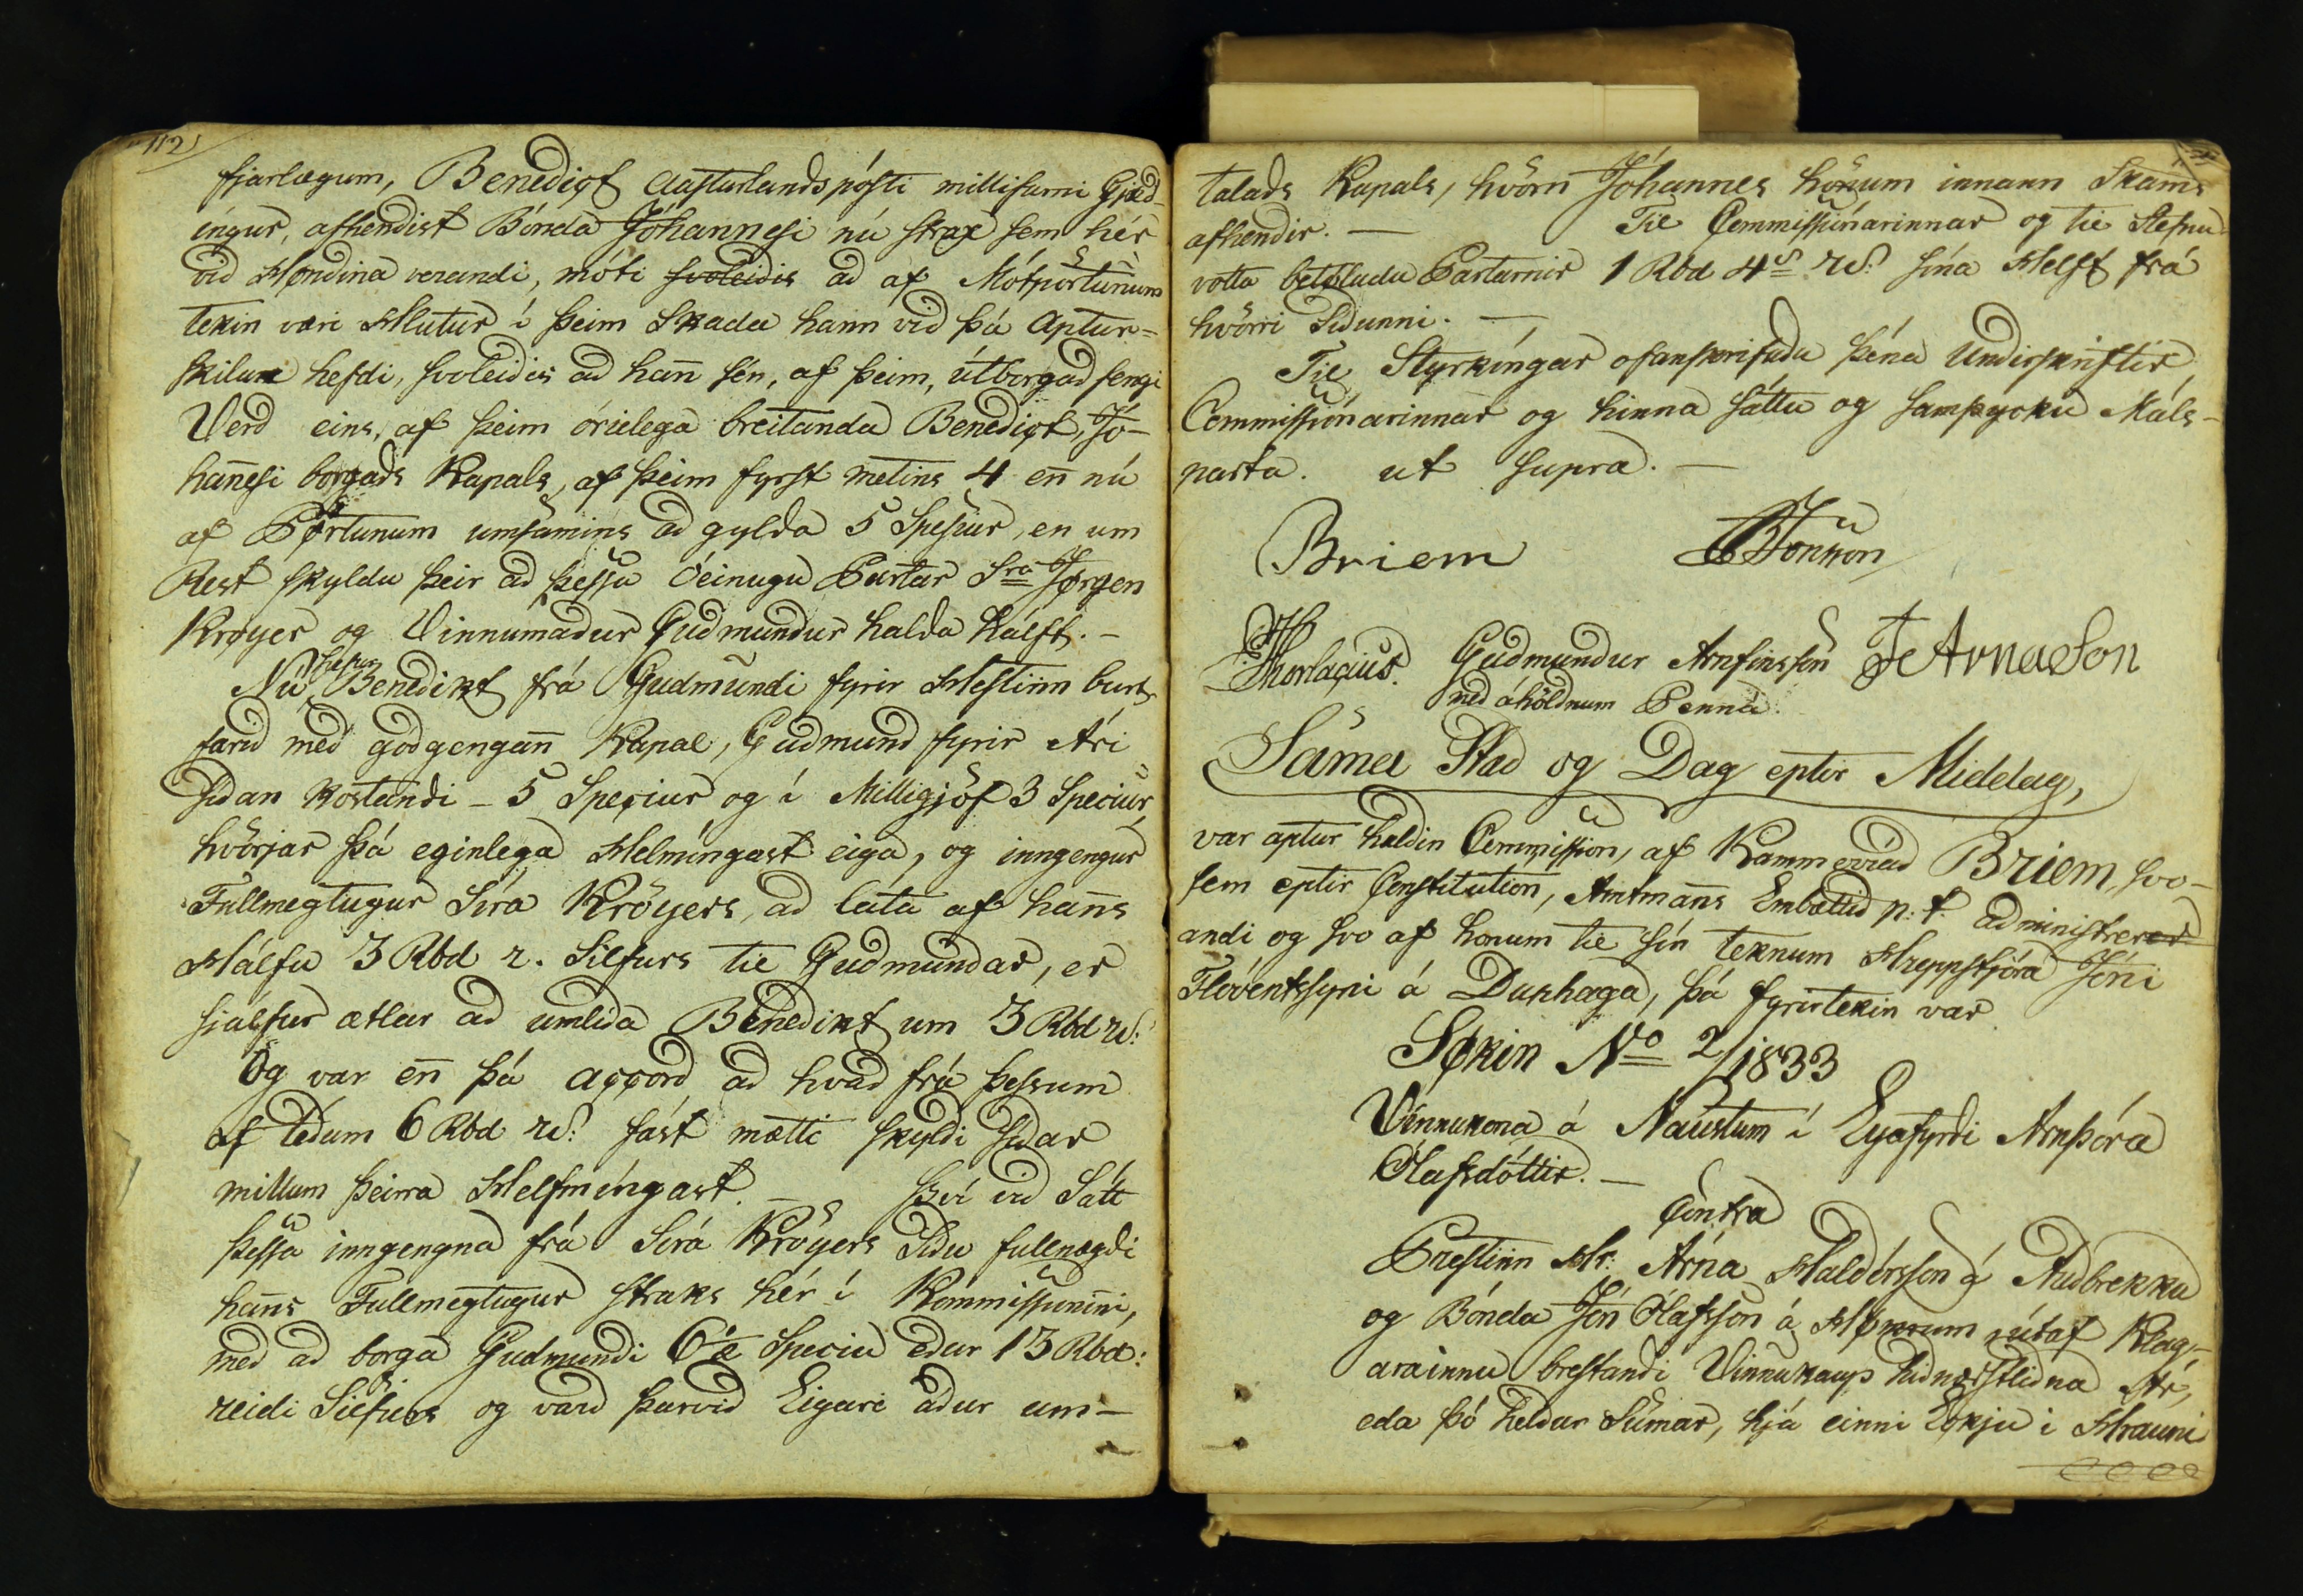 112
fjarlægum, Benedict Austurlandspósti millifarni Gjæd-
ingur, afhendist Bónda Jóhannesi nú strax sem hér
vid Hendina verandi, móti svoleidis ad af Mótpörtunum
tekin væri Hlutur í þeim Skada hann vid þá Aptur-
skilun hefdi, svoleidis ad hann sén, af þeim, útborgad fengi
Verd eins, af þeim órielega breitanda Benedict, Jó-
hannesi borgads Kapals, af þeim fyrst metins 4 enn nú
af Pörtunum umsamins ad gylda 5 Spesiur, en um
Rest skyldu þeir ad þessu óeinugu Partar Sra Jørgen
Krøyer og Vinnumadur Gudmundur halda hálft. -
Nú hefur Benedikt frá Gudmundi fyrir Hestinn burt-
farid med godgengann Kapal, Gudmund fyrir Ári
sidan kostandi - 5 Speciur og í Milligjöf 3 Speciur,
hvörjar þá eginlega Helmíngast eiga, og inngengur
Fullmegtugur Síra Kröyers, ad láta af hanns
Hálfu 3 Rbd r. Silfurs til Gudmundar, er
sjálfur ætlar ad umlida Benedikt um 3 Rbd rS:
Og var enn þá accord ad hvad frá þessum
af tédum 6 Rbd rS: fást mætti skyldi sidar
millum þeirra Helfmíngast. - Því vid Sátt
þessa inngengna frá Síra Kröyers Sidu fullnægdi
hanns Fullmegtugur straks hér í Kommissiuninni,
med ad borga Gudmundi 6½ Speciu edur 13 Rbd:
reidi Silfurs og vard þarvid Eigari ádur um-
talads Kapals, hvörn Jóhannes hönum innann Skams
afhendir. - Til Commissiónarinnar og til Stefnu-
votta betöludu Partarnir 1 Rbd 4s rS: sína Helft frá
hvörri Sidunni. -
Til Styrkíngar ofanskrifudu þéna Undirskriftir
Commissiónarinnar og hinna sáttu og samþycku Máls-
parta. ut supra. -
Briem BJónsson
Thorlacius. Gudmundur Arnfinsson JArnason
med áhöldnum Penna.
Sama Stad og Dag eptir Middag,
var aptur haldin Commission, af Kammerrád Briem, svo-
sem eptir Constitution, Amtmanns Embættid p: t. administrer-
andi og svo af honum til sín teknum Hreppstjóra Jóni
Flóventssyni á Dunhaga, þá fyrirtekin var
Søkin No 2/1833
Vinnukona á Naustum í Eyafyrdi Arnþóra
Ólafsdóttir. -
Contra
Prestinn Hr: Árna Haldórsson á Audbrekku
og Bónda Jón Ólafsson á útaf Klag-
arainnu brestandi Vinnukaup hidnærstlidna Ár,
eda þó heldur Sumar, hjá einni Eckju i Hrauni